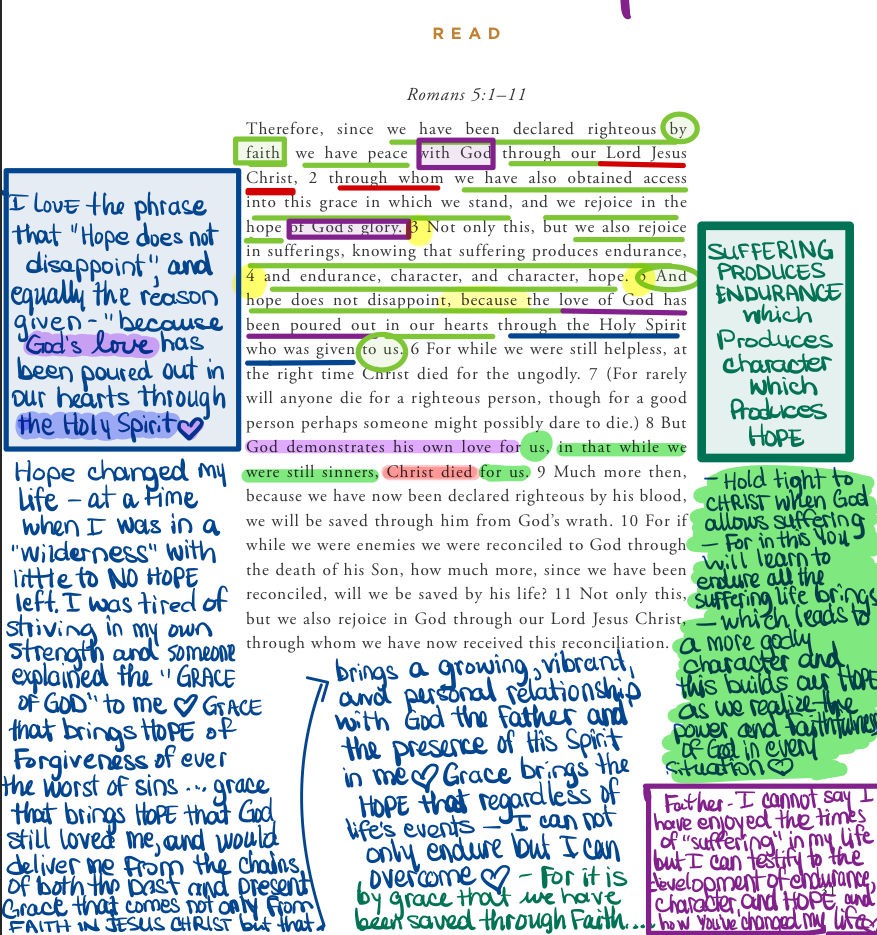 READ
Romans 5:1–11
Therefore, since we have been declared righteous by
faith we have peace with God through our Lord Jesus
Christ, 2 through whom we have also obtained access
into this grace in which we stand, and we rejoice in the
hope of God's glory. 3 Not only this, but we also rejoice
in sufferings, knowing that suffering produces endurance,
4 and endurance, character, and character, hope. 5 And
hope does not disappoint, because the love of God has
been poured out in our hearts through the Holy Spirit
who was given to us. 6 For while we were still helpless, at
the right time Christ died for the ungodly. 7 (For rarely
will anyone die for a righteous person, though for a good
person perhaps someone might possibly dare to die.) 8 But
God demonstrates his own love for us, in that while we
were still sinners, Christ died for us. 9 Much more then,
because we have now been declared righteous by his blood,
we will be saved through him from God's wrath. 10 For if
while we were enemies we were reconciled to God through
the death of his Son, how much more, since we have been
reconciled, will we be saved by his life? 11 Not only this,
but we also rejoice in God through our Lord Jesus Christ,
through whom we have now received this reconciliation.
I love the phrase
that "Hope does not
disappoint", and
equally the reason
given - "because
God's love has
been poured out in
our hearts through
the Holy Spirit ♡
Hope changed my
life - at a time
when I was in a
"wilderness" with
little to NO HOPE
left. I was tired of
striving in my own
strength and someone
explained the "GRACE
OF GOD" to me ♡ GRACE
that brings HOPE of
Forgiveness of ever
the worst of sins ... grace
that brings HOPE that God
still loved me, and would
deliver me from the chains
of both the past and present
Grace that comes not only from
FAITH IN JESUS CHRIST but that
brings a growing, vibrant,
and personal relationship
with God the Father and
the presence of His Spirit
in me ♡ Grace brings the
HOPE that regardless of
life's events - I can not
only endure but I can
overcome ♡ - For it is
by grace that we have
been saved through Faith...
SUFFERING
PRODUCES
ENDURANCE
which
Produces
character
which
Produces
HOPE
- Hold tight to
CHRIST when God
allows suffering
- For in this you
will learn to
endure all the
suffering life brings
- which leads to
a more godly
character and
this builds our HOPE
as we realize the
power and faithfulness
of God in every
situation ♡
Father - I cannot say I
have enjoyed the times
of "suffering" in my life
but I can testify to the
development of endurance,
character and HOPE, and
how you've changed my life